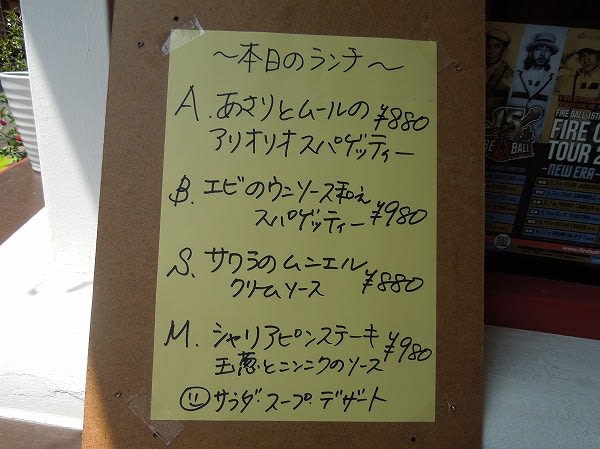 ～本日のランチ～
A. あさりとムールの ¥880
アリオリオスパゲッティー
B. エビのウニソース和え
スパゲッティー ¥980
S. サワラのムニエル
クリームソース ¥880
M. シャリアピンステーキ ¥980
玉葱とニンニクのソース
サラダ・スープ・デザート
15
FIRE BALL 15TH
FIRE
TOUR 2
-NEW ERA-